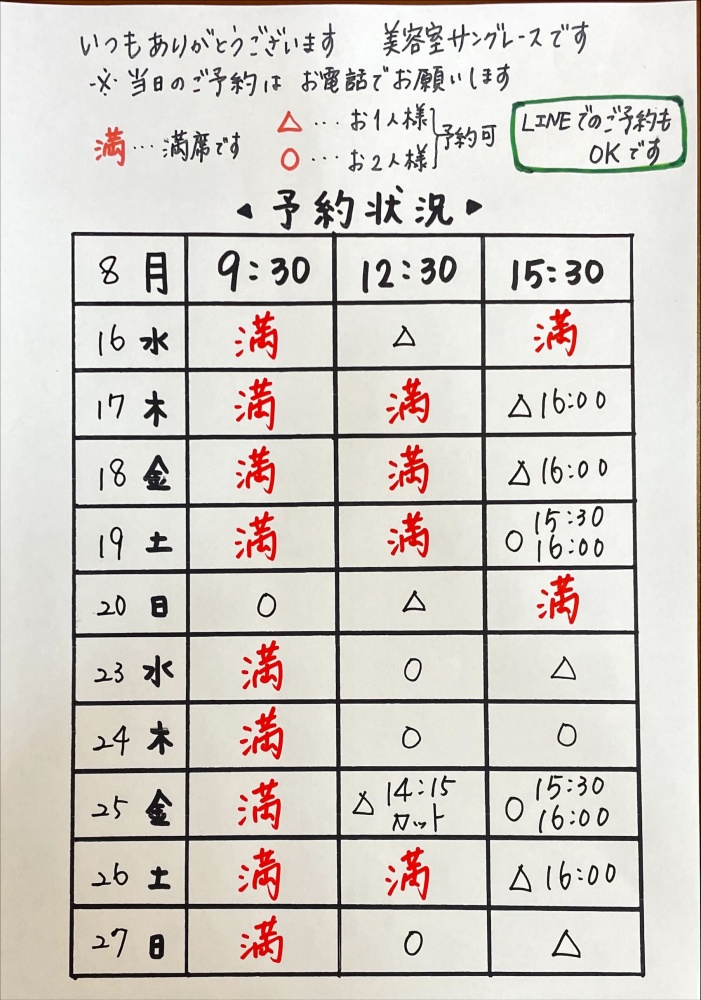 いつもありがとうございます 美容室サングレースです
※当日のご予約は お電話でお願いします
満…満席です
△…お1人様
○…お2人様
予約可
LINEでのご予約も
OKです
◀ 予約状況 ▶
8月 9:30 12:30 15:30
16 水 満 △ 満
17 木 満 満 △16:00
18 金 満 満 △16:00
19 土 満 満 ○15:30 16:00
20 日 ○ △ 満
23 水 満 ○ △
24 木 満 ○ ○
25 金 満 △14:15 カット ○15:30 16:00
26 土 満 満 △16:00
27 日 満 ○ △